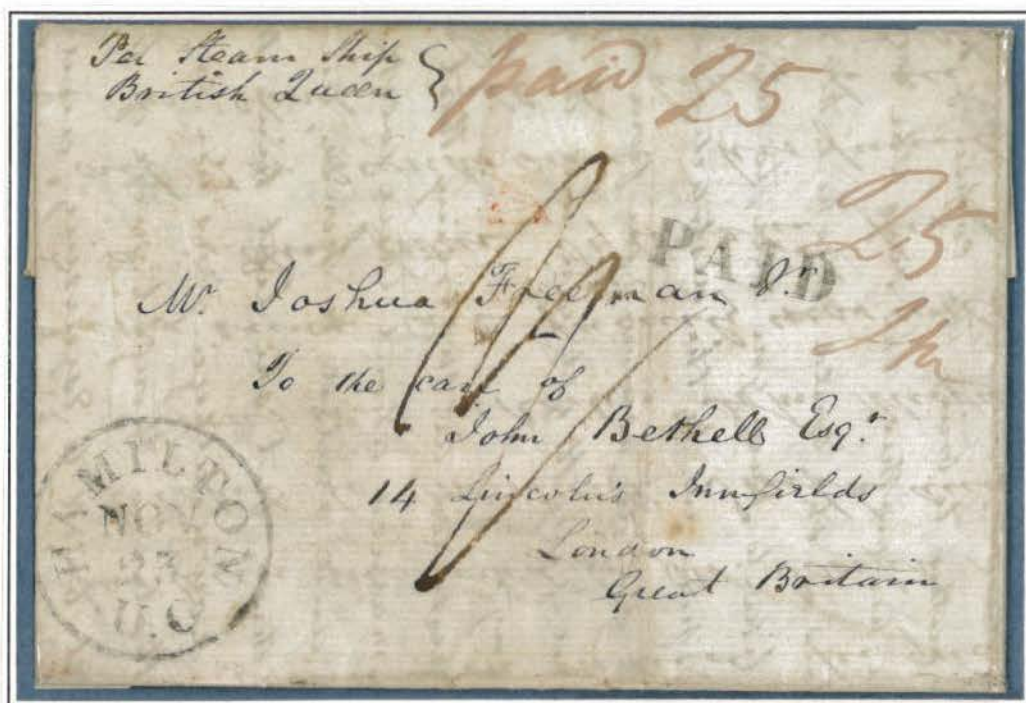 Per Steam Ship
British Queen } paid 25
25
PAID
Mr. Joshua Freeman Jr.
To the care of
John Bethell Esqr.
14 Lincoln's Innfields
London
Great Britain
HAMILTON
NOV
23
U.C